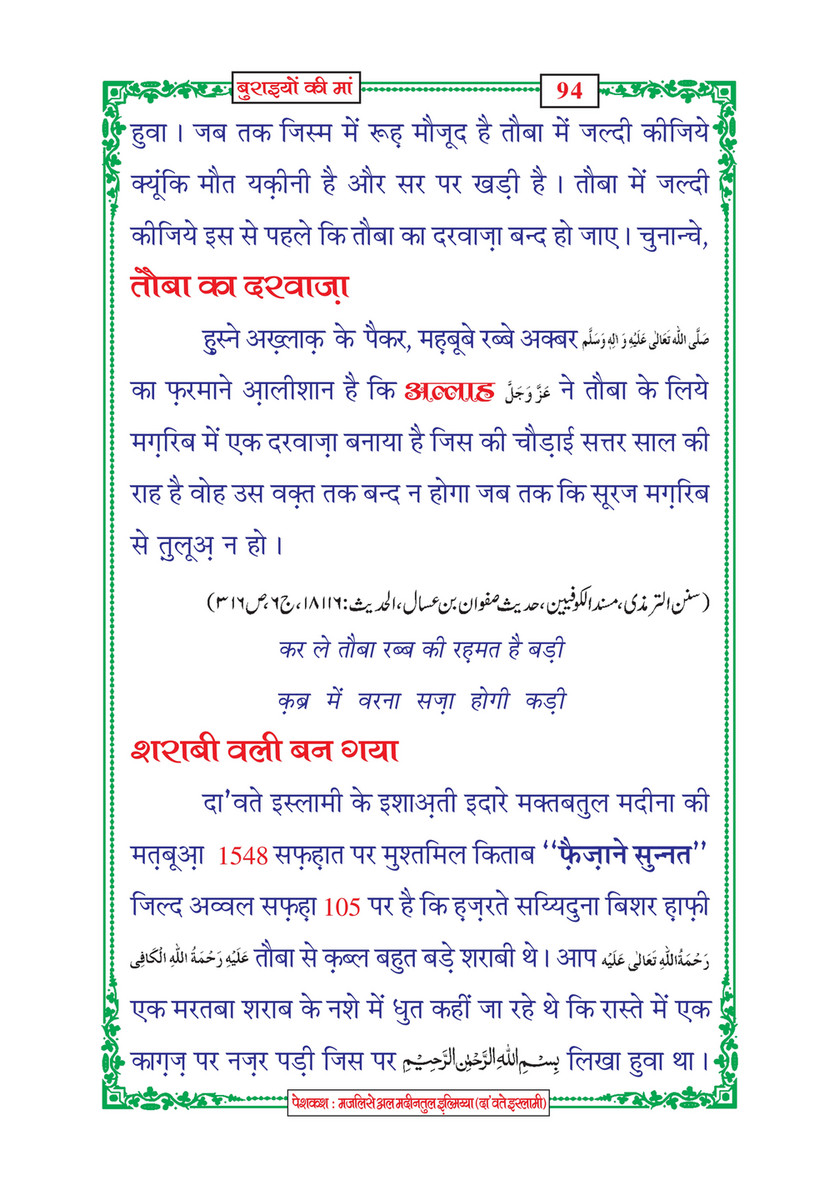 बुराइयों की मां
94
हुवा । जब तक जिस्म में रूह़ मौजूद है तौबा में जल्दी कीजिये
क्यूंकि मौत यक़ीनी है और सर पर खड़ी है । तौबा में जल्दी
कीजिये इस से पहले कि तौबा का दरवाज़ा बन्द हो जाए । चुनान्चे,
तौबा का दरवाज़ा
हुस्ने अख़्लाक़ के पैकर, मह़बूबे रब्बे अक्बर صَلَّى اللّٰه تَعَالٰى عَلَيْهِ وَ اٰلِهٖ وَسَلَّم
का फ़रमाने आ़लीशान है कि अल्लाह عَزَّ وَجَلَّ ने तौबा के लिये
मग़रिब में एक दरवाज़ा बनाया है जिस की चौड़ाई सत्तर साल की
राह है वोह उस वक़्त तक बन्द न होगा जब तक कि सूरज मग़रिब
से त़ुलूअ़ न हो ।
(سنن الترمذی،مسند الکوفیین،حدیث صفوان بن عسال،الحدیث:۱۸۱۱۶،ج۶،ص۳۱۶)
कर ले तौबा रब्ब की रह़मत है बड़ी
क़ब्र में वरना सज़ा होगी कड़ी
शराबी वली बन गया
दा'वते इस्लामी के इशाअ़ती इदारे मक्तबतुल मदीना की
मत़बूआ़ 1548 सफ़ह़ात पर मुश्तमिल किताब ‘‘फ़ैज़ाने सुन्नत’’
जिल्द अव्वल सफ़ह़ा 105 पर है कि ह़ज़रते सय्यिदुना बिशर ह़ाफ़ी
عَلَيْهِ رَحْمَةُ اللّٰهِ الْكَافِى तौबा से क़ब्ल बहुत बड़े शराबी थे । आप رَحْمَةُاللّٰهِ تَعَالٰى عَلَيْه
एक मरतबा शराब के नशे में धुत कहीं जा रहे थे कि रास्ते में एक
काग़ज़ पर नज़र पड़ी जिस पर بِسْمِ اللّٰهِ الرَّحْمٰنِ الرَّحِيْمِ लिखा हुवा था ।
पेशकश : मजलिसे अल मदीनतुल इ़ल्मिय्या (दा'वते इस्लामी)